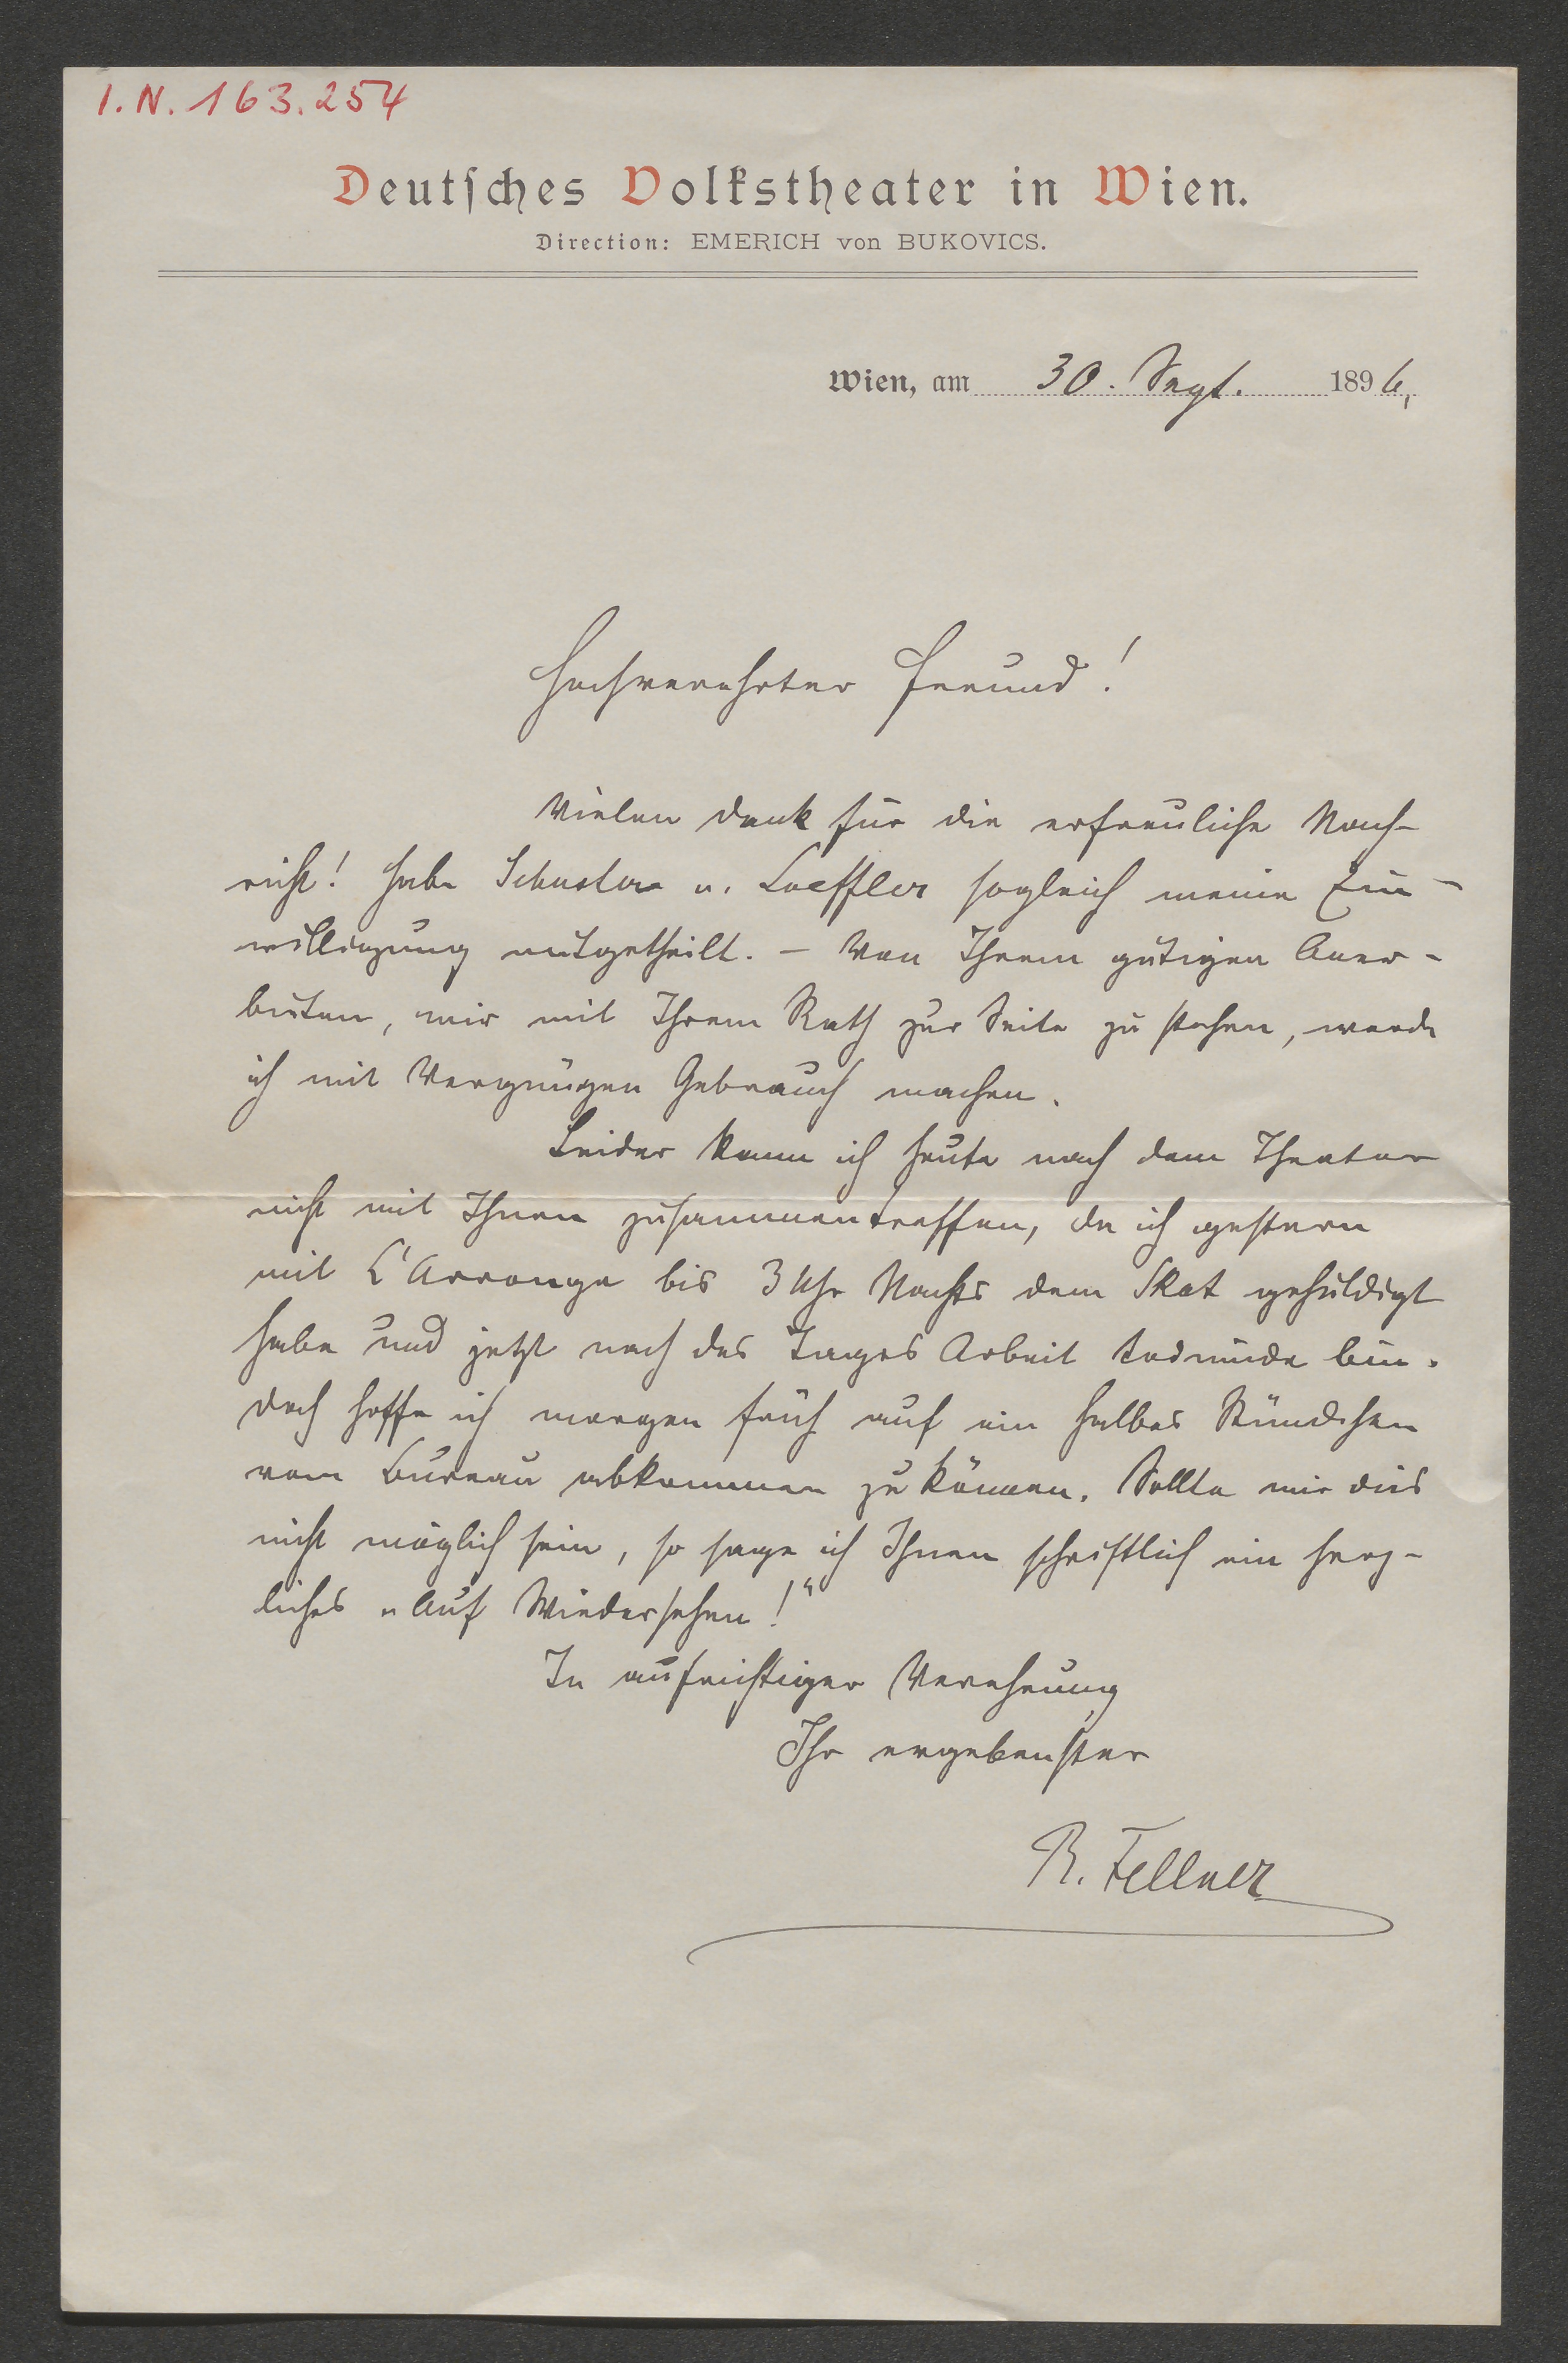 I.N. 163.254
Deutſches Volkstheater in Wien.
Direction: EMERICH von BUKOVICS.
Wien, am 30. Sept. 1896,
Hochverehrter Freund!
Vielen Dank für die erfreuliche Nach-
richt! Habe Schuster u. Loeffler sogleich meine Ein-
willigung mitgetheilt. – Von Ihrem gütigen Aner-
bieten, mir mit Ihrem Rath zur Seite zu stehen, werde
ich mit Vergnügen Gebrauch machen.
Leider kann ich heute nach dem Theater
nicht mit Ihnen zusammentreffen, da ich gestern
mit L'Arronge bis 3 Uhr Nachts dem Skat gehuldigt
habe und jetzt nach des Tages Arbeit todmüde bin.
Doch hoffe ich morgen früh auf ein halbes Stündchen
vom Bureau abkommen zu können. Sollte mir dies
nicht möglich sein, so sage ich Ihnen schriftlich ein herz-
liches „Auf Wiedersehen!“
In aufrichtiger Verehrung
Ihr ergebenster
R. Fellner